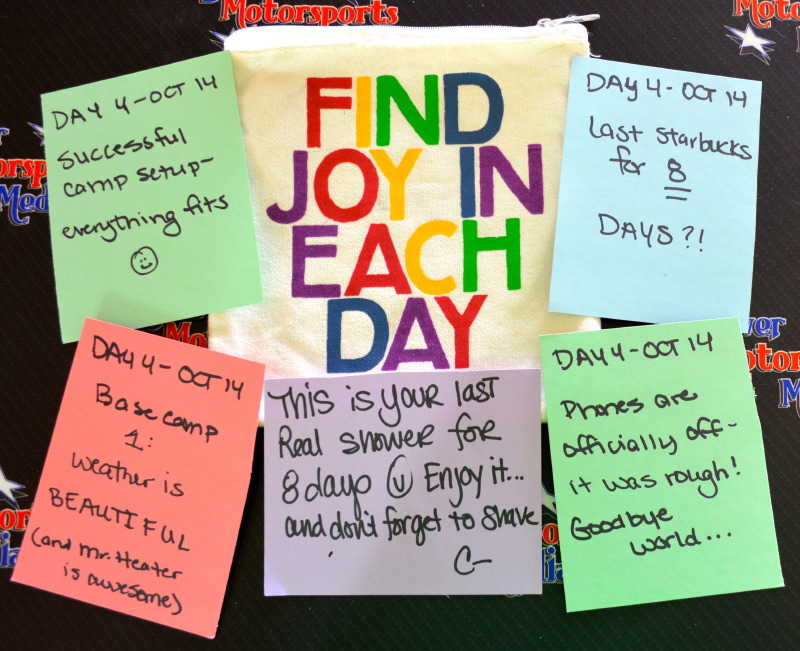 Motorsports
FIND
JOY IN
EACH
DAY
DAY 4 - OCT 14
Successful
camp setup -
everything fits
DAY 4 - OCT 14
Last Starbucks
for 8
DAYS?!
DAY 4 - OCT 14
Base camp
1:
weather is
BEAUTIFUL
(and Mr. Heater
is awesome)
This is your last
Real shower for
8 days Enjoy it...
and don't forget to shave
C-
DAY 4 - OCT 14
Phones are
officially off -
it was rough!
Goodbye
world...